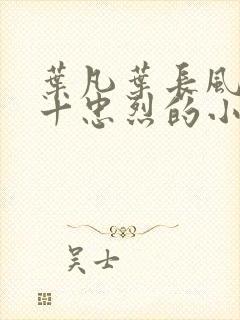 葉凡葉長風
十忠烈的小
吴士